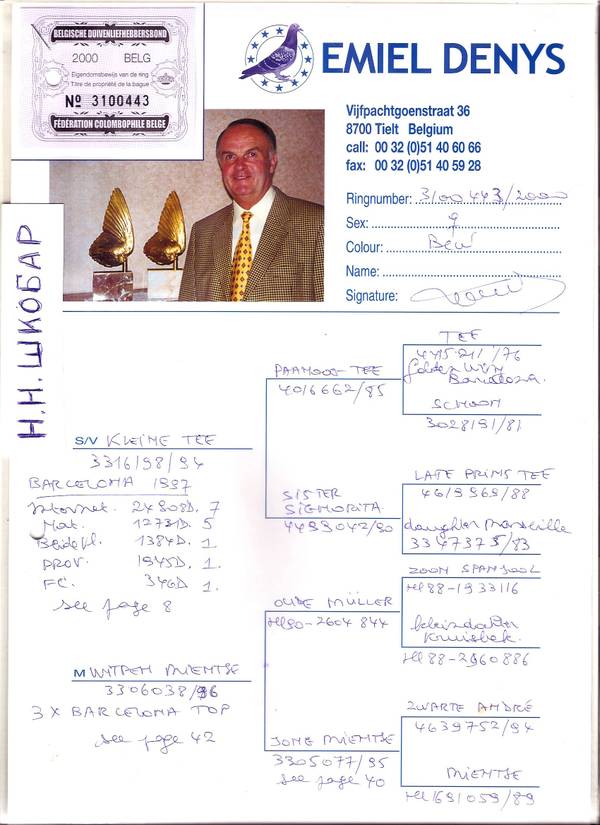 BELGISCHE DUIVENLIEFHEBBERSBOND
2000 BELG
Eigendomsbewijs van de ring
Titre de propriété de la bague
Nº 3100443
FÉDÉRATION COLOMBOPHILE BELGE
EMIEL DENYS
Vijfpachtgoenstraat 36
8700 Tielt Belgium
call: 00 32 (0)51 40 60 66
fax: 00 32 (0)51 40 59 28
Ringnumber: 3100443/2000
Sex: ♀
Colour:
Name:
Signature:
Н.Н. ШКОБАР
TEE
/76
Barcelona
PAAMOOS TEE
4016662/85
SCHOON
3028191/81
S/V KLEINE TEE
3316198/94
BARCELONA 1997
Internat. 24908D. 7
Nat. 12731D. 5
1384D. 1.
PROV. 1945D. 1.
FC. 346D 1.
see page 8
LATE PRINS TEE
4619969/88
SISTER
SIGMORITA
4499042/90
daughter Marseille
3347375/83
ZOON SPANJOOL
Hl 88-1933116
OUDE MÜLLER
Hl 90-2604844
kleindochter
Kruisbek.
Hl 88-2960886
M WITPEN MIENTSE
3306038/96
3 X BARCELONA TOP
see page 42
ZWARTE ANDRÉ
4639752/94
JONG MIENTSE
3305077/95
see page 40
MIENTSE
Hl 1691059/89